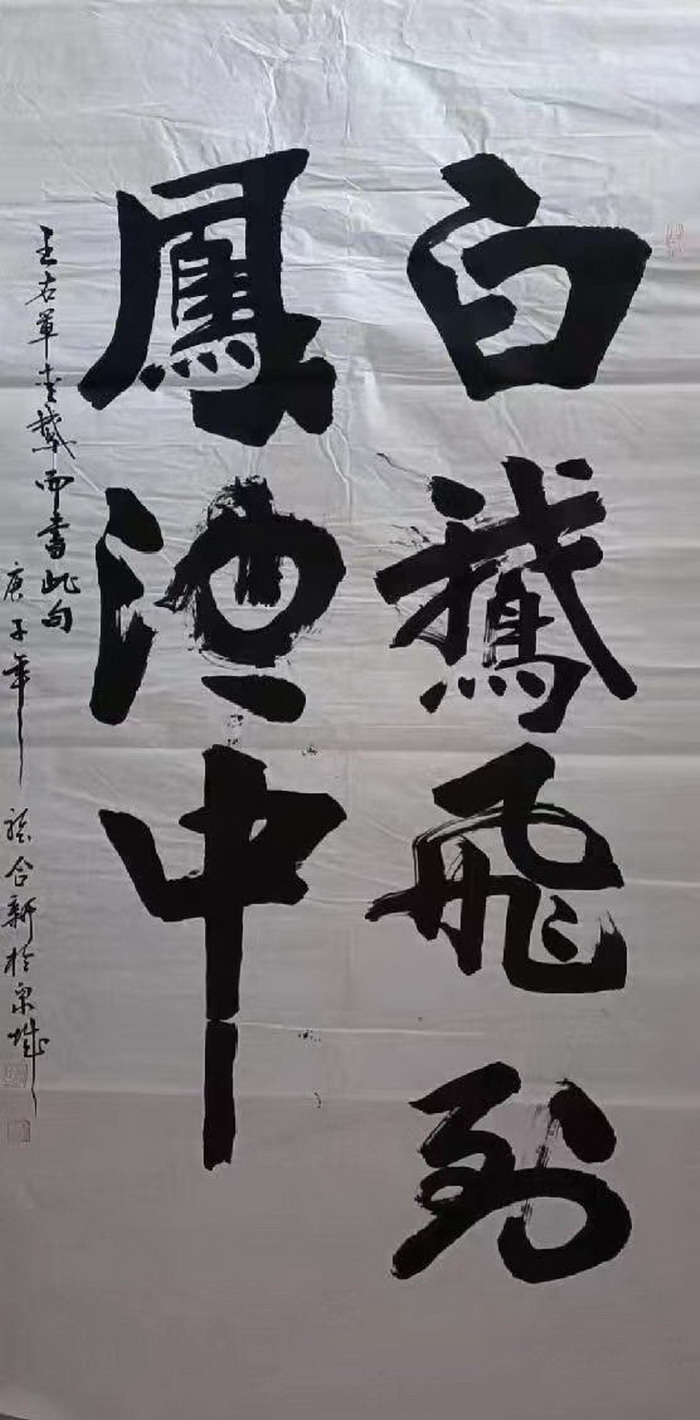 白鵝飛到
鳳池中
王右軍愛鵝而書此句
庚子年
合新於泉城